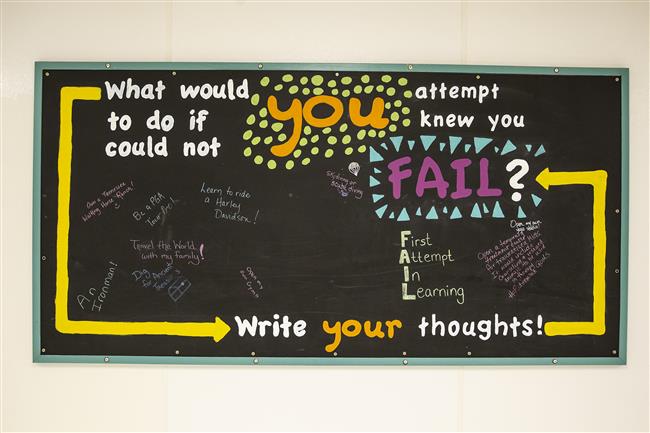 What would you attempt
to do if you knew you
could not FAIL?
Skydiving or
Scuba diving
Own a Tennessee
Walking Horse Ranch!
Be a PGA
Tour Pro!
Learn to ride
a Harley
Davidson!
First
Attempt
In
Learning
Travel the World
with my family!
Dig for Ancient
Treasures
An
Ironman!
Open my
own
Open my own
Open a
Write your thoughts!